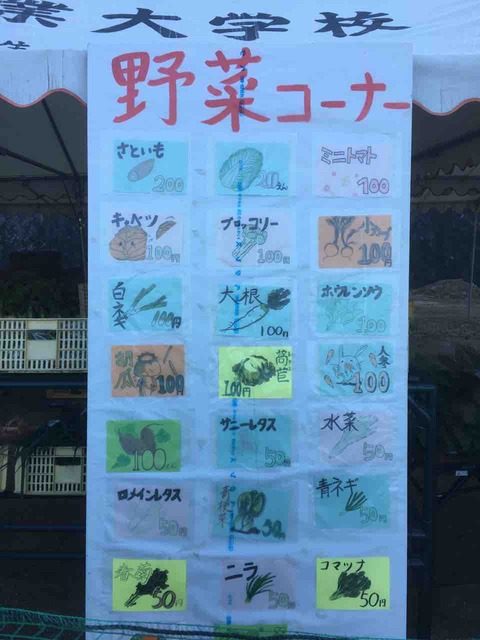 業大学校
野菜コーナー
さといも
200
ミニトマト
100
キャベツ
100円
ブロッコリー
100円
小カブ
100円
白ネギ
100円
大根
100円
ホウレンソウ
100
胡瓜
100円
萵苣
100円
人参
100
100えん
サニーレタス
50円
水菜
50円
ロメインレタス
50円
50円
青ネギ
50円
春菊
50円
ニラ
50円
コマツナ
50円